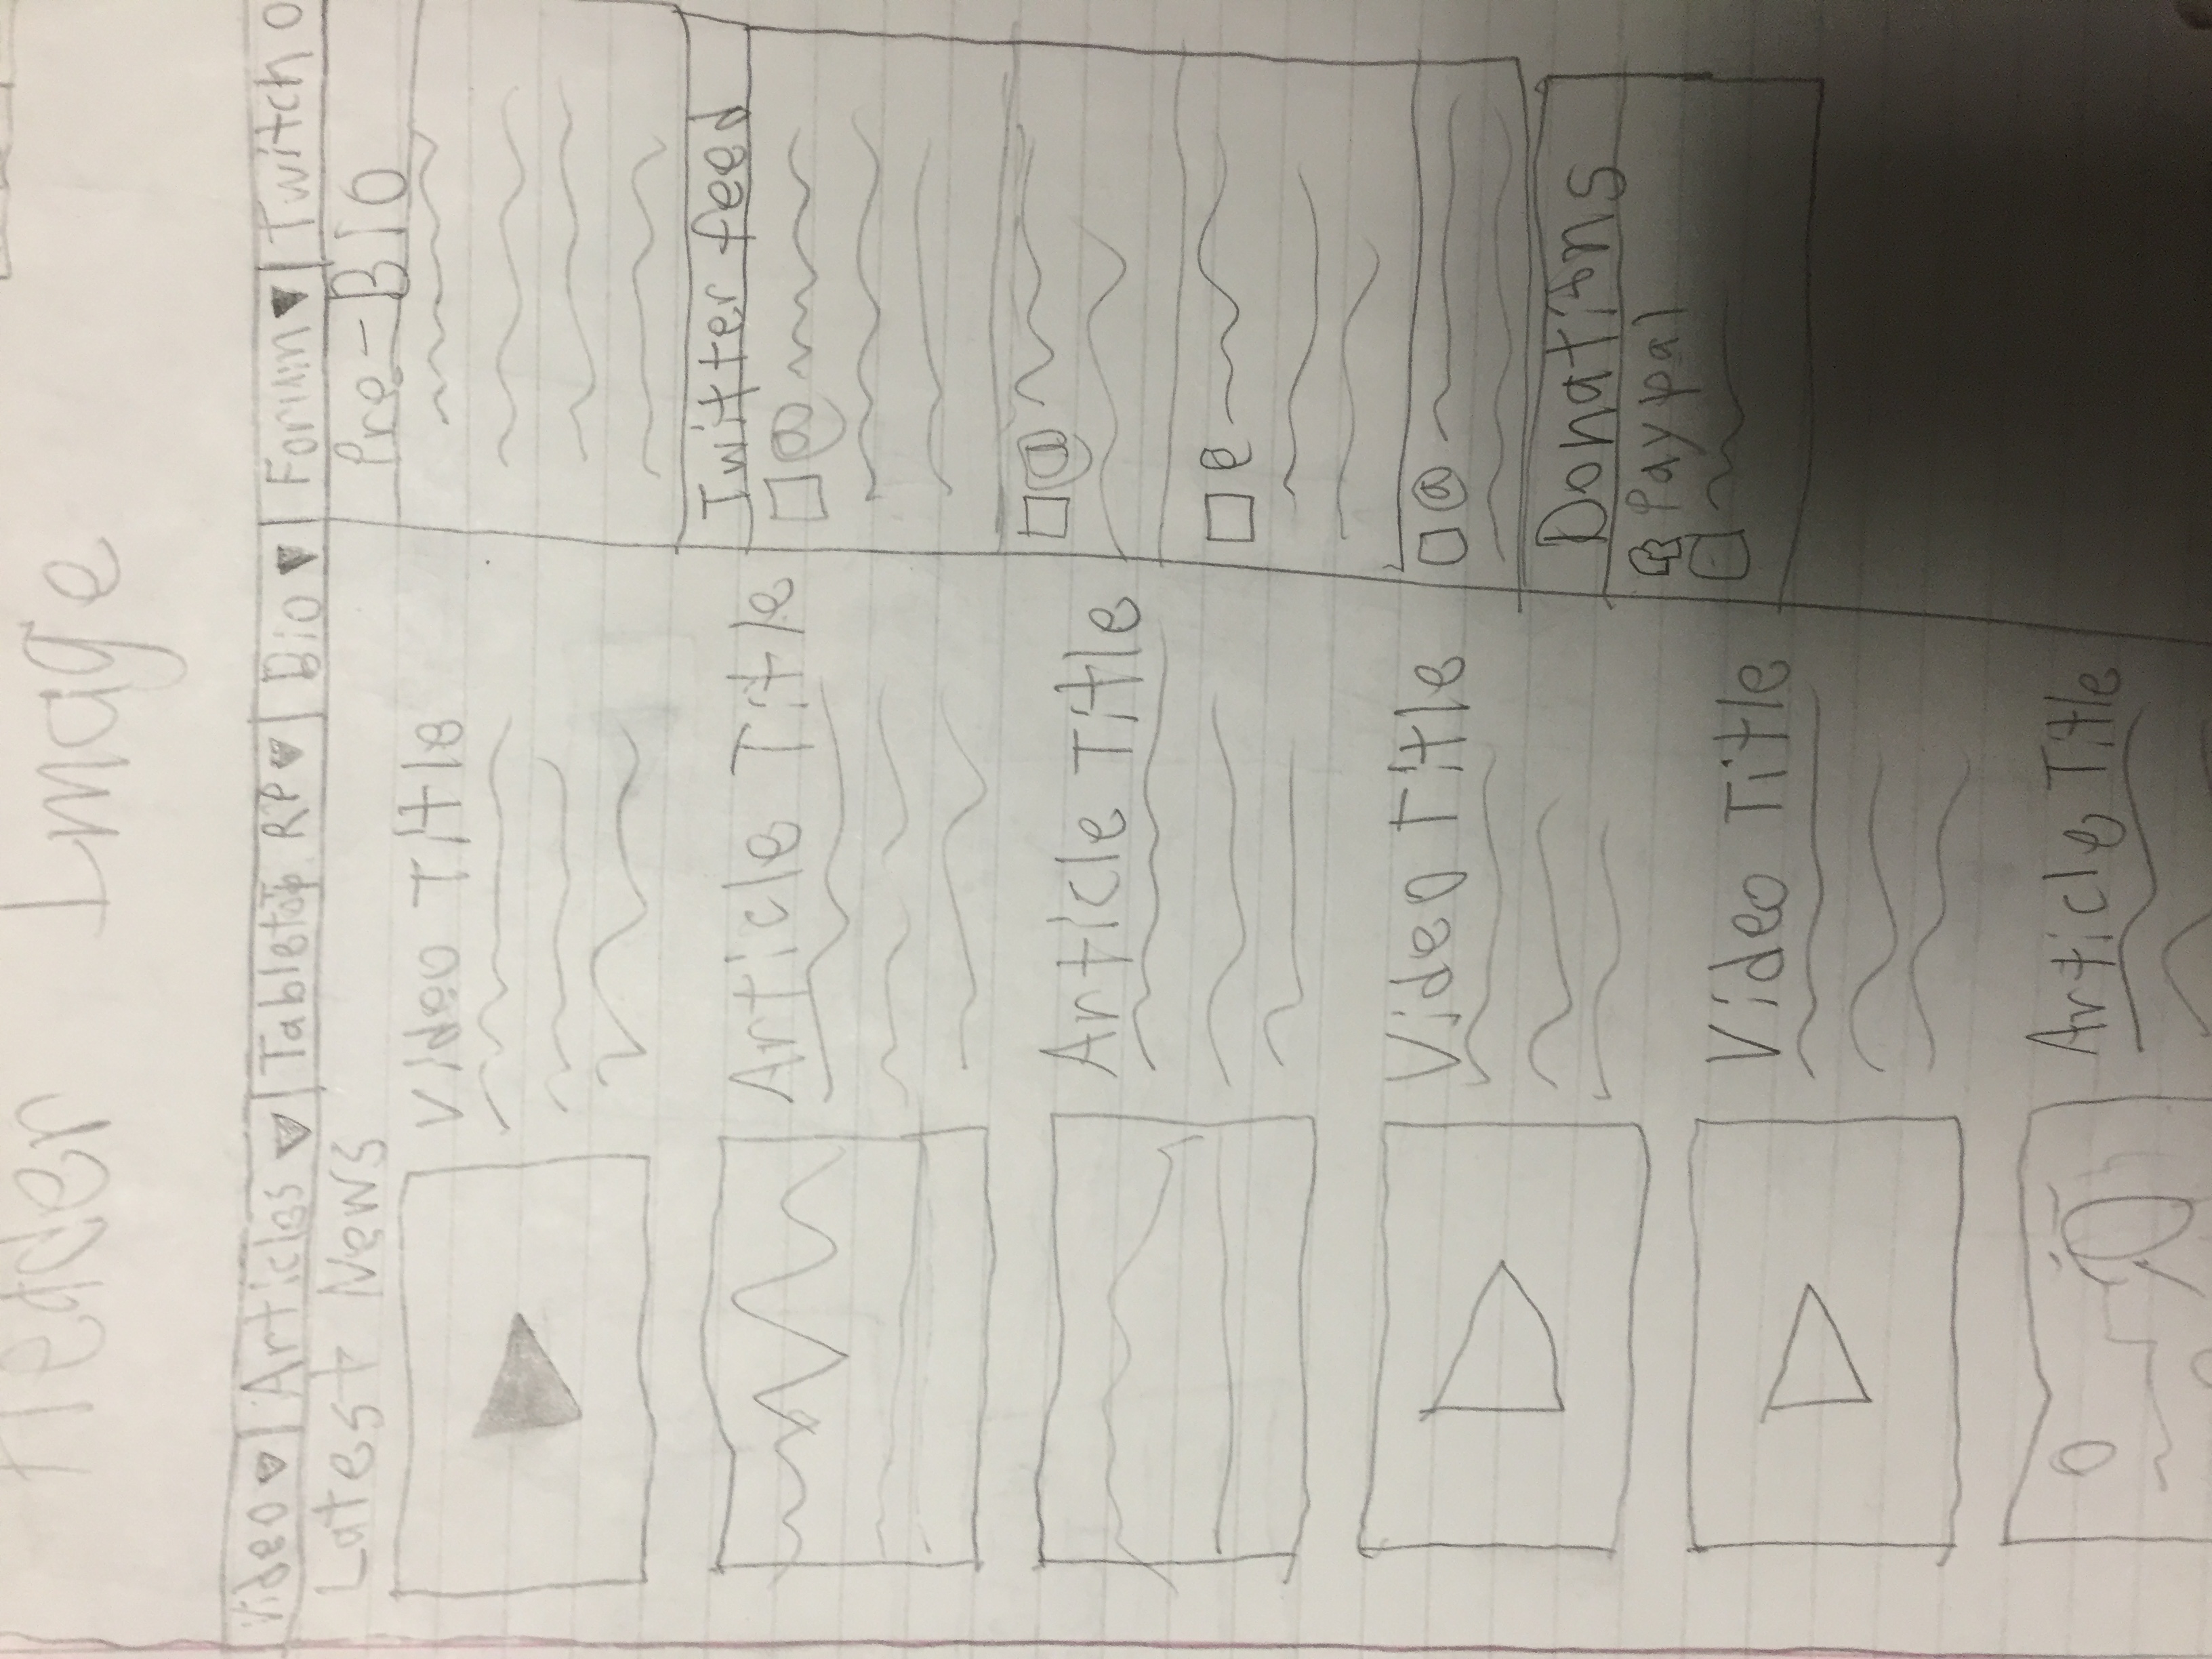 Header Image
Video Articles Tabletop RP Bio Forum Twitch
Latest News
Video Title
Article Title
Article Title
Video Title
Video Title
Article Title
Pre-Bio
Twitter feed
@
@
@
@
Donations
Paypal